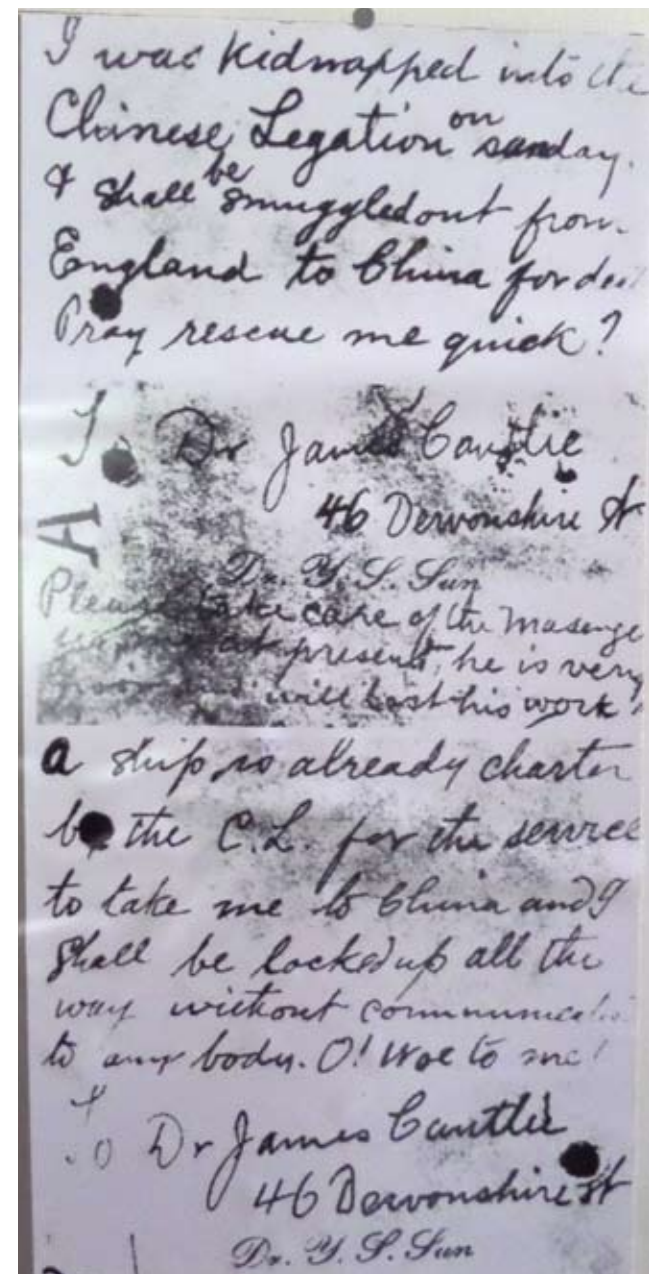 I was Kidnapped into the
Chinese Legation on
sunday.
I shall be smuggledout from
England to China for
Pray rescue me quick?
To Dr James Cantlie
46 Dervonshire St
A
Dr. Y. S. Sun
Please take care of the masenge
at present, he is very
will lost his work
a ship is already charter
by the C.L. for the service
to take me to China and I
shall be locked up all the
way without
to any body. O! Woe to me!
To Dr James Cantlie
46 Dervonshire St
Dr. Y. S. Sun